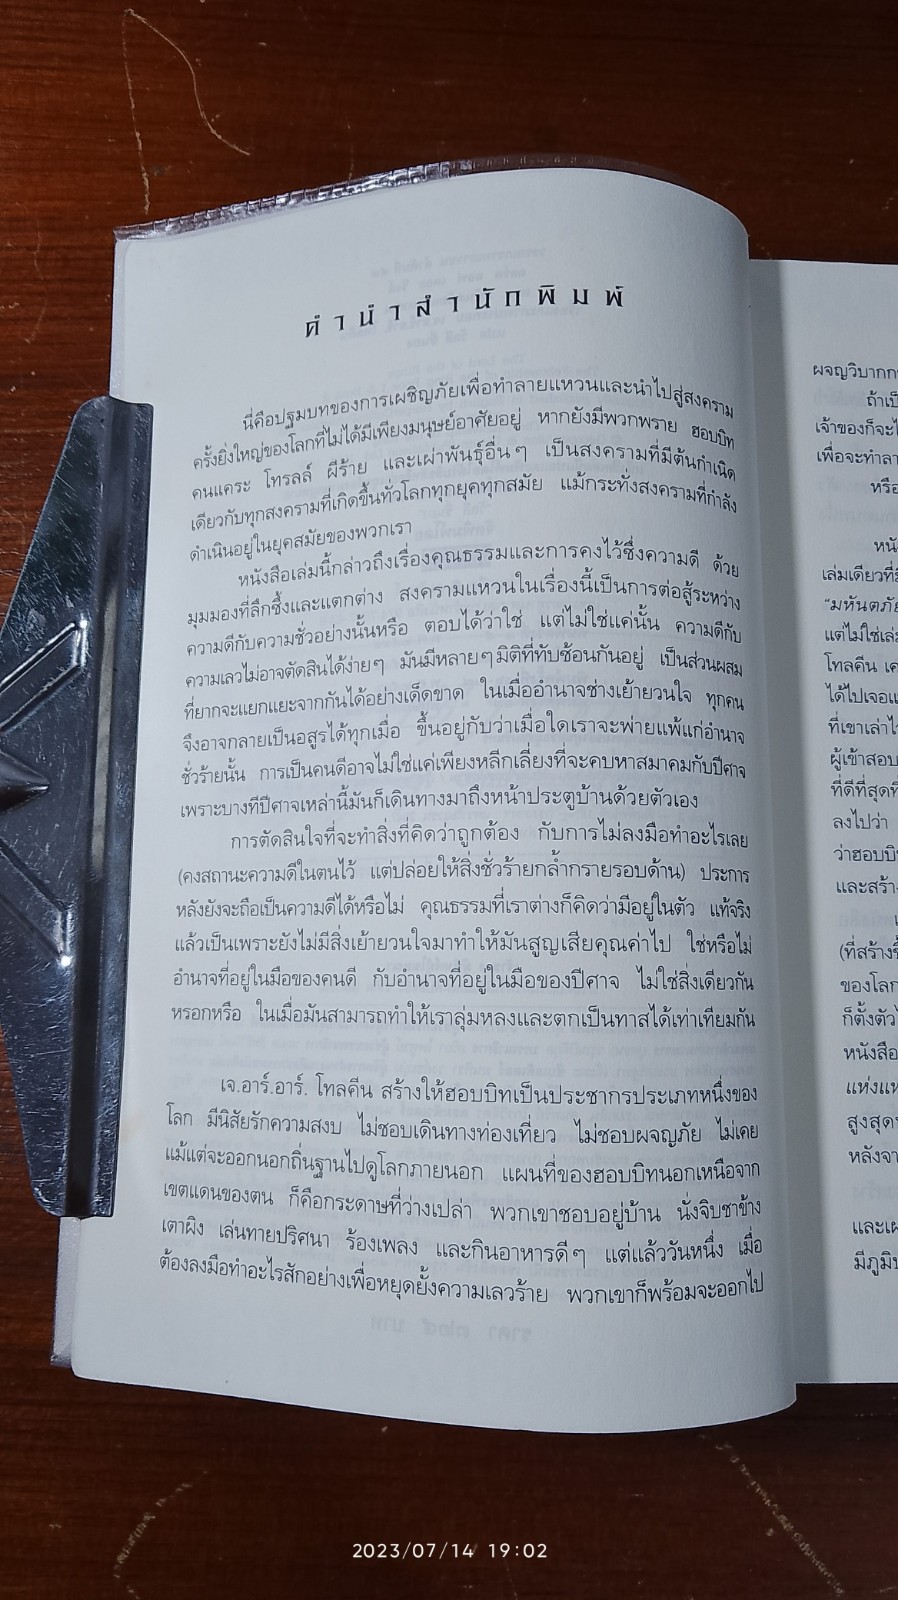 คำนำสำนักพิมพ์
นี่คือปฐมบทของการเผชิญภัยเพื่อทำลายแหวนและนำไปสู่สงคราม
ครั้งยิ่งใหญ่ของโลกที่ไม่ได้มีเพียงมนุษย์อาศัยอยู่ หากยังมีพวกพราย ฮอบบิท
คนแคระ โทรลล์ ผีร้าย และเผ่าพันธุ์อื่นๆ เป็นสงครามที่มีต้นกำเนิด
เดียวกับทุกสงครามที่เกิดขึ้นทั่วโลกทุกยุคทุกสมัย แม้กระทั่งสงครามที่กำลัง
ดำเนินอยู่ในยุคสมัยของพวกเรา
หนังสือเล่มนี้กล่าวถึงเรื่องคุณธรรมและการคงไว้ซึ่งความดี ด้วย
มุมมองที่ลึกซึ้งและแตกต่าง สงครามแหวนในเรื่องนี้เป็นการต่อสู้ระหว่าง
ความดีกับความชั่วอย่างนั้นหรือ ตอบได้ว่าใช่ แต่ไม่ใช่แค่นั้น ความดีกับ
ความเลวไม่อาจตัดสินได้ง่ายๆ มันมีหลายๆมิติที่ทับซ้อนกันอยู่ เป็นส่วนผสม
ที่ยากจะแยกแยะจากกันได้อย่างเด็ดขาด ในเมื่ออำนาจช่างเย้ายวนใจ ทุกคน
จึงอาจกลายเป็นอสูรได้ทุกเมื่อ ขึ้นอยู่กับว่าเมื่อใดเราจะพ่ายแพ้แก่อำนาจ
ชั่วร้ายนั้น การเป็นคนดีอาจไม่ใช่แค่เพียงหลีกเลี่ยงที่จะคบหาสมาคมกับปีศาจ
เพราะบางทีปีศาจเหล่านี้มันก็เดินทางมาถึงหน้าประตูบ้านด้วยตัวเอง
การตัดสินใจที่จะทำสิ่งที่คิดว่าถูกต้อง กับการไม่ลงมือทำอะไรเลย
(คงสถานะความดีในตนไว้ แต่ปล่อยให้สิ่งชั่วร้ายกล้ำกรายรอบด้าน) ประการ
หลังยังจะถือเป็นความดีได้หรือไม่ คุณธรรมที่เราต่างก็คิดว่ามีอยู่ในตัว แท้จริง
แล้วเป็นเพราะยังไม่มีสิ่งเย้ายวนใจมาทำให้มันสูญเสียคุณค่าไป ใช่หรือไม่
อำนาจที่อยู่ในมือของคนดี กับอำนาจที่อยู่ในมือของปีศาจ ไม่ใช่สิ่งเดียวกัน
หรอกหรือ ในเมื่อมันสามารถทำให้เราลุ่มหลงและตกเป็นทาสได้เท่าเทียมกัน
เจ.อาร์.อาร์. โทลคีน สร้างให้ฮอบบิทเป็นประชากรประเภทหนึ่งของ
โลก มีนิสัยรักความสงบ ไม่ชอบเดินทางท่องเที่ยว ไม่ชอบผจญภัย ไม่เคย
แม้แต่จะออกนอกถิ่นฐานไปดูโลกภายนอก แผนที่ของฮอบบิทนอกเหนือจาก
เขตแดนของตน ก็คือกระดาษที่ว่างเปล่า พวกเขาชอบอยู่บ้าน นั่งจิบชาข้าง
เตาผิง เล่นทายปริศนา ร้องเพลง และกินอาหารดีๆ แต่แล้ววันหนึ่ง เมื่อ
ต้องลงมือทำอะไรสักอย่างเพื่อหยุดยั้งความเลวร้าย พวกเขาก็พร้อมจะออกไป
ถ้าเป็
เจ้าของก็จะไ
เพื่อจะทำลา
หรือ
หนัง
เล่มเดียวที่มี
"มหันตภัย
แต่ไม่ใช่เล่
โทลคีน เค
ได้ไปเจอแ
ที่เขาเล่าไ
ผู้เข้าสอบ
ที่ดีที่สุดที่
ลงไปว่า
ว่าฮอบบิ
และสร้าง
(ที่สร้างขึ้
ของโลก
ก็ตั้งตัวไ
หนังสือ
แห่งแห
สูงสุด
หลังจา
และเผ
มีภูมิ
2023/07/14 19:02